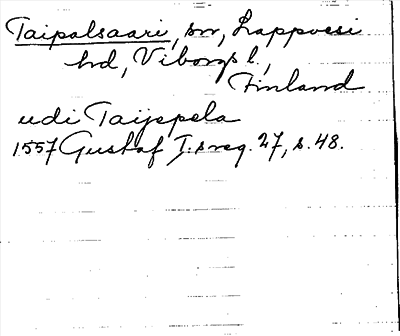 Taipalsaari, sn, Lappvesi
hd, Viborgs l.,
Finland
udi Taijepela
1557 Gustaf I:s reg. 27, s. 48.